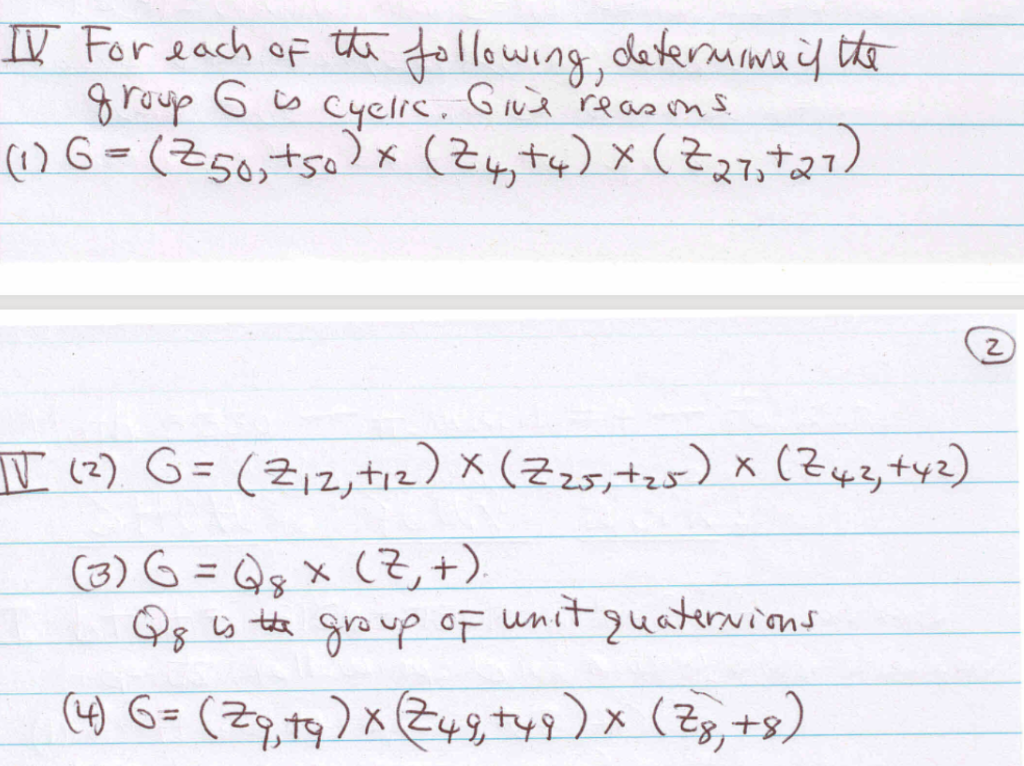 IV For each of the following, determine if the
group G is cyclic. Give reasons
(1) G = (Z₅₀, +₅₀) × (Z₄, +₄) × (Z₂₇, +₂₇)
2
IV (2) G = (Z₁₂, +₁₂) × (Z₂₅, +₂₅) × (Z₄₂, +₄₂)
(3) G = Q₈ × (Z, +).
Q₈ is the group of unit quaternions
(4) G = (Z₉, +₉) × (Z₄₉, +₄₉) × (Z₈, +₈)